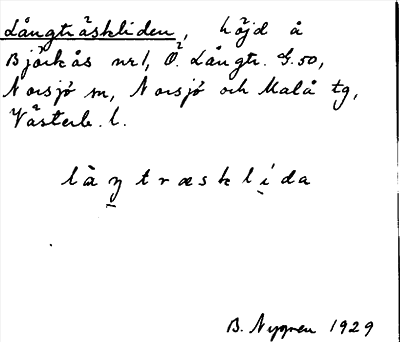 Långträskliden, höjd å
Björkås nr 1, Ö. Långtr. G. 50,
Norsjö sn, Norsjö och Malå tg,
Västerb. l.
låŋtræsklida
B. Nygren 1929